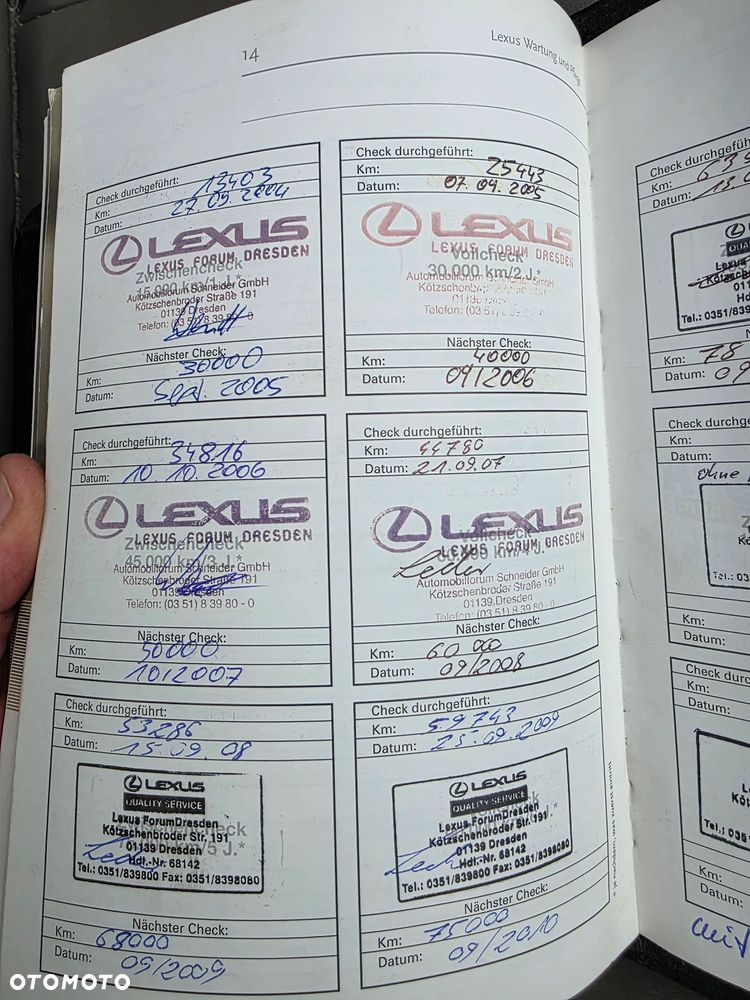 14
Lexus Wartung und Pflege
Check durchgeführt:
Km: 13403
Datum: 27.09.2004
LEXUS
LEXUS FORUM DRESDEN
Zwischencheck
15.000 km/1 J.*
Automobilforum Schneider GmbH
Kötzschenbroder Straße 191
01139 Dresden
Telefon: (03 51) 8 39 80 - 0
Nächster Check:
Km: 30000
Datum: Sept. 2005
Check durchgeführt:
Km: 25443
Datum: 07.09.2005
LEXUS
LEXUS FORUM DRESDEN
Vollcheck
30.000 km/2 J.*
Automobilforum Schneider GmbH
Kötzschenbroder
01139
Telefon: (03 51)
Nächster Check:
Km: 40000
Datum: 09/2006
Check durchgeführt:
Km: 34816
Datum: 10.10.2006
LEXUS
LEXUS FORUM DRESDEN
Zwischencheck
45.000 km/3 J.*
Automobilforum Schneider GmbH
Kötzschenbroder Straße 191
01139 Dresden
Telefon: (03 51) 8 39 80 - 0
Nächster Check:
Km: 50000
Datum: 10/2007
Check durchgeführt:
Km: 44780
Datum: 21.09.07
LEXUS
LEXUS FORUM DRESDEN
Vollcheck
km/4 J.*
Automobilforum Schneider GmbH
Kötzschenbroder Straße 191
01139 Dresden
Telefon: (03 51) 8 39 80 - 0
Nächster Check:
Km: 60 000
Datum: 09/2008
Check durchgeführt:
Km: 53286
Datum: 15.09.08
LEXUS
QUALITY SERVICE
Lexus ForumDresden
Kötzschenbroder Str. 191
01139 Dresden
Hdl.-Nr. 68142
Tel.: 0351/839800 Fax: 0351/8398080
Nächster Check:
Km: 68000
Datum: 09/2009
Check durchgeführt:
Km: 59743
Datum: 25.09.2009
LEXUS
QUALITY SERVICE
Lexus ForumDresden
Kötzschenbroder Str. 191
01139 Dresden
Hdl.-Nr. 68142
Tel.: 0351/839800 Fax: 0351/8398080
Nächster Check:
Km: 75000
Datum: 09/2010
* Je nachdem, was zuerst eintritt
Check durchgeführt:
Km:
Datum:
Tel.: 0351/839
Nächster
Km: 78
Datum: 09
Check durchg
Km:
Datum:
ohne
Nächs
Km:
Datum:
Check
Km:
Datum:
Km:
Datum:
mit
OTOMOTO